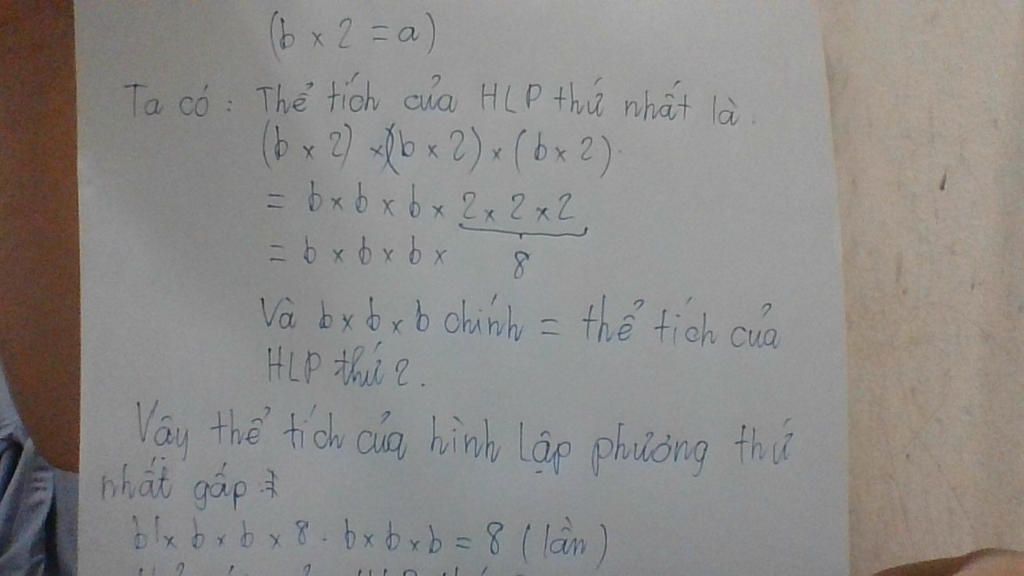 (b × 2 = a)
Ta có : Thể tích của HLP thứ nhất là.
(b × 2) × (b × 2) × (b × 2).
= b × b × b × 2 × 2 × 2
= b × b × b × 8
Và b × b × b chính = thể tích của
HLP thứ 2.
Vậy thể tích của hình lập phương thứ
nhất gấp
b × b × b × 8 : b × b × b = 8 (lần)